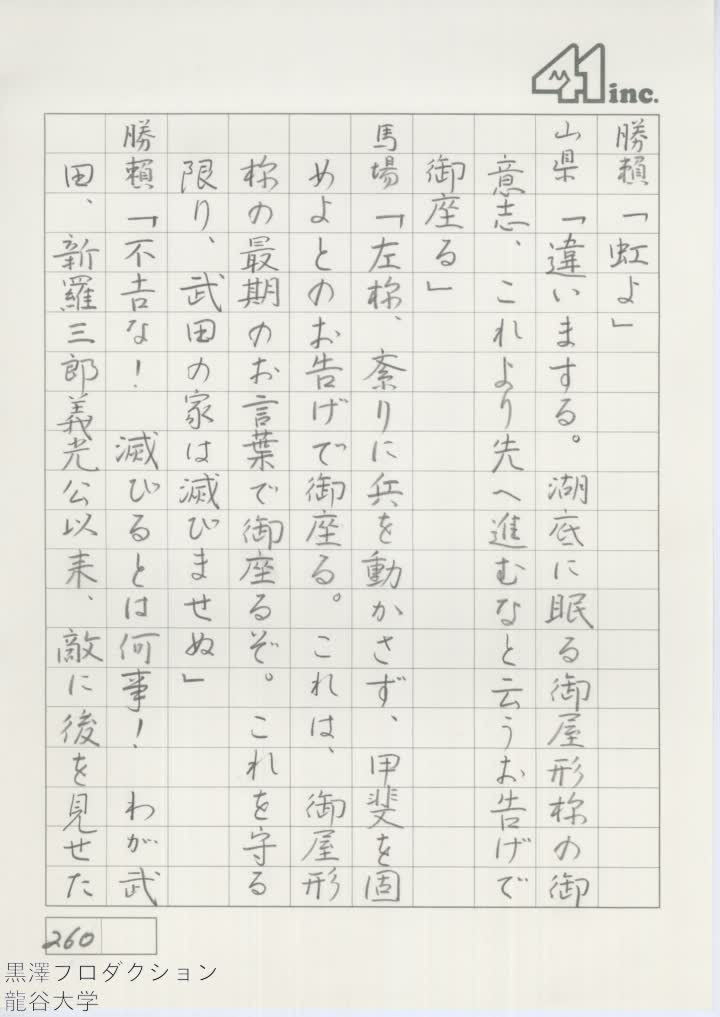 41 inc.
勝頼「虹よ」
山県「違いまする。湖底に眠る御屋形様の御
意志、これより先へ進むなと云うお告げで
御座る」
馬場「左様、紊りに兵を動かさず、甲斐を固
めよとのお告げで御座る。これは、御屋形
様の最期のお言葉で御座るぞ。これを守る
限り、武田の家は滅びませぬ」
勝頼「不吉な！　滅びるとは何事！　わが武
田、新羅三郎義光公以来、敵に後を見せた
260
黒澤フロダクション
龍谷大学